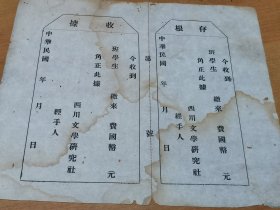 存根
今收到
班學生 繳來 費國幣 元
角正此據
四川文學研究社
經手人
中華民國 年 月 日
號
收據
今收到
班學生 繳來 費國幣 元
角正此據
四川文學研究社
經手人
中華民國 年 月 日